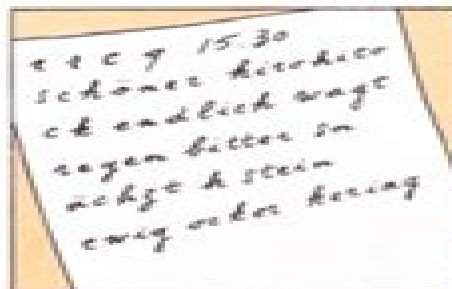 e e c g 15.30
schöner hirohito
ck endlich wagt
regen bitter sn
ächzt h stein
ewig ocker hering